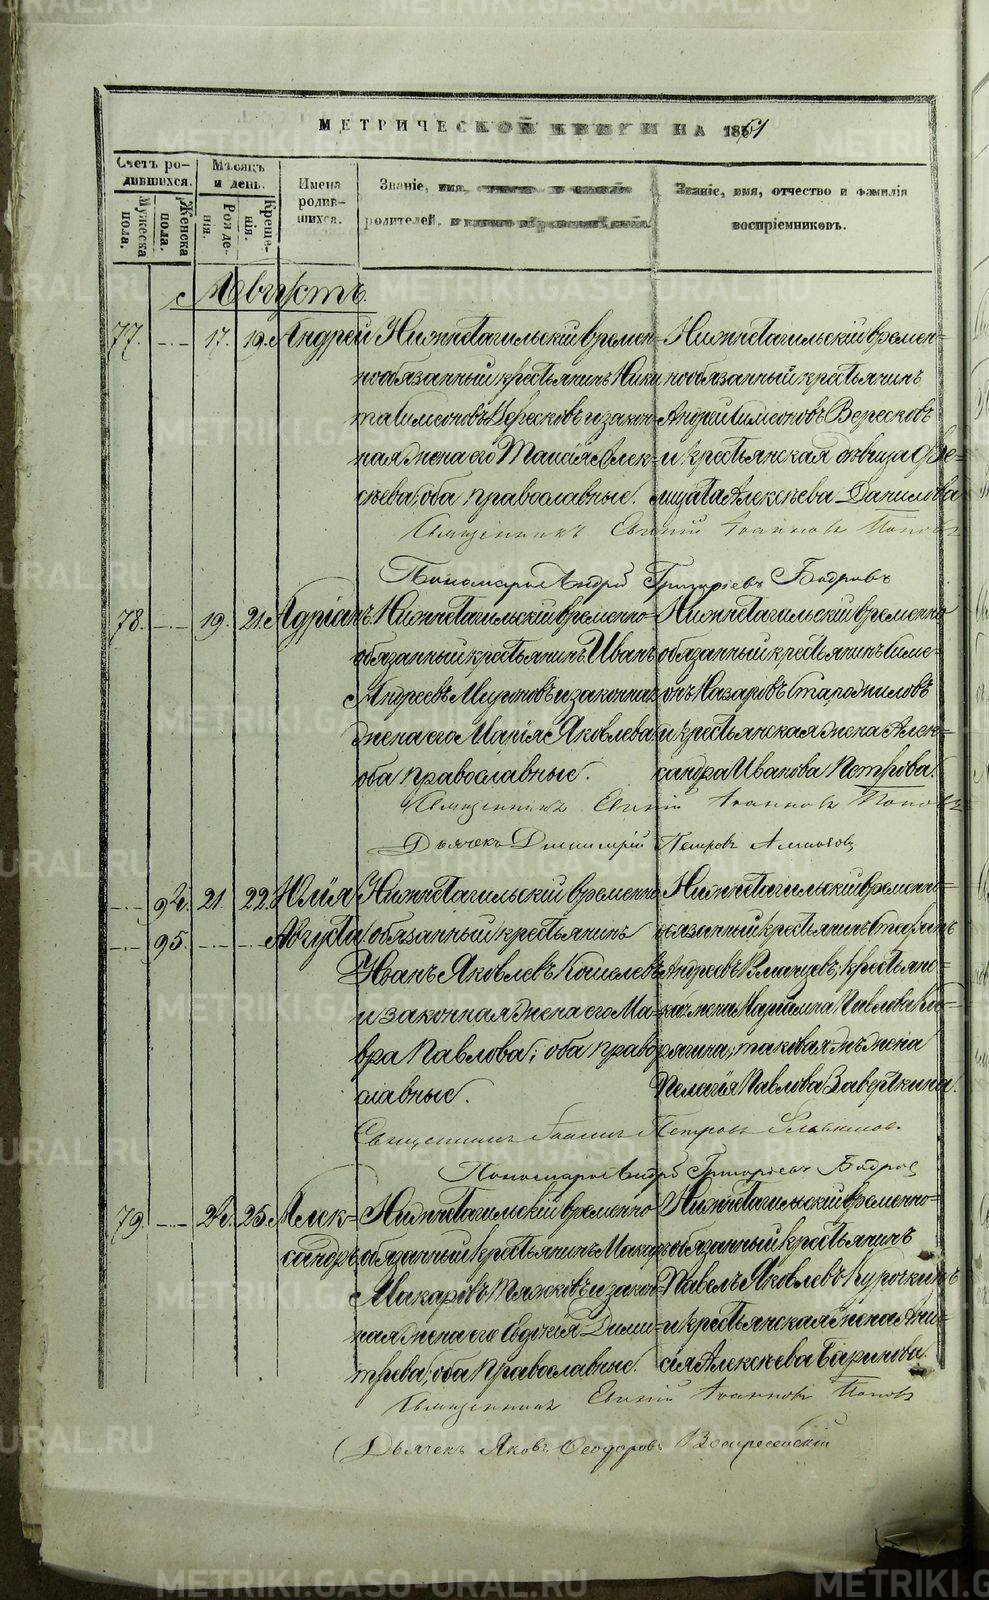 МЕТРИЧЕСКОЙ КНИГИ НА 1861
Счетъ родившихся.
Мужеска пола.
Женска пола.
Мѣсяцъ и день.
Рожденія.
Крещенія.
Имена родившихся.
Званіе, имя, отчество и фамилія родителей, и какого вѣроисповѣданія.
Званіе, имя, отчество и фамилія воспріемниковъ.
Августъ.
77. 17. 19. Андрей
Нижнетагильскій времен-
нообязанный крестьянинъ Ники
та Симеоновъ Вересковъ и закон-
ная жена его Таисія Алек-
сѣева; оба православные.
Нижнетагильскій времен-
нообязанный крестьянинъ
Андрей Симеоновъ Вересковъ
и крестьянская дѣвица Фе-
лицата Алексѣева Данилова
Священникъ Евгеній Іоанновъ Поповъ
Пономарь Андрей Григорьевъ Бодровъ
78. 19. 21. Адріанъ.
Нижнетагильскій временно-
обязанный крестьянинъ Иванъ
Андреевъ Мироновъ и законная
жена его Марія Яковлева
оба православные.
Нижнетагильскій временно
обязанный крестьянинъ Симе-
онъ Назаровъ Старожиловъ
и крестьянская жена Алек-
сандра Иванова Петрова.
Священникъ Евгеній Іоанновъ Поповъ
Дьячекъ Димитрій Петровъ
94. 21. 22. Юлія
95. Августа
Нижнетагильскій временно
обязанный крестьянинъ
Иванъ Яковлевъ Кошелевъ
и законная жена его Ма-
вра Павлова; оба право
славные.
Нижнетагильскій временно-
обязанный крестьянинъ Стафанъ
Андреевъ крестьян-
ская жена Маріамна Павлова
таковая-жъ жена
Пелагія Павлова Заверткина.
Священникъ Іоаннъ Петровъ
Пономарь Андрей Григорьевъ Бодров
79 24. 25. Алек-
сандръ
Нижнетагильскій временно
обязанный крестьянинъ Макаръ
Макаровъ Тяжковъ и закон-
ная жена его Евдокія Дими-
трева; оба православные.
Нижнетагильскій временно-
обязанный крестьянинъ
Павелъ Яковлевъ Курочкинъ
и крестьянская жена Ани-
сія Алексѣева Баринова.
Священникъ Евгеній Іоанновъ Поповъ
Дьячекъ Яковъ Ѳеодоровъ Воскресенскій
METRIKI.GASO-URAL.RU